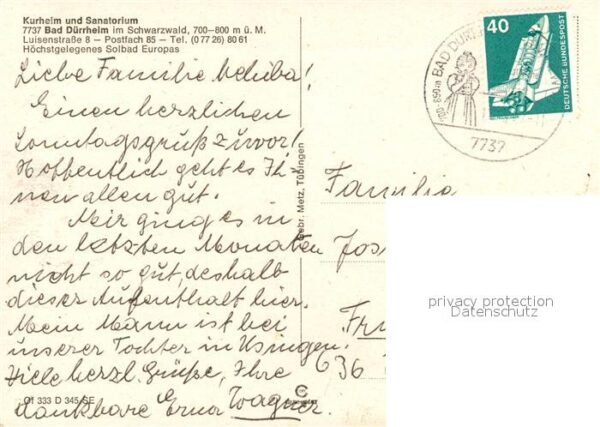 Kurheim und Sanatorium
7737 Bad Dürrheim im Schwarzwald, 700–800 m ü. M.
Luisenstraße 8 – Postfach 85 – Tel. (0 77 26) 80 61
Höchstgelegenes Solbad Europas
Liebe Familie
Einen herzlichen
Sonntagsgruß zuvor!
Hoffentlich geht es Ih-
nen allen gut.
Mir ging es in
den letzten Monaten
nicht so gut, deshalb
dieser Aufenthalt hier.
Mein Mann ist bei
unserer Tochter in Usingen.
Viele herzl. Grüße, Ihre
dankbare Erna Wagner.
333 D 345 SE
Gebr. Metz, Tübingen
BAD DÜR
7737
40
DEUTSCHE BUNDESPOST
Familie
Jos
Fr
636
privacy protection
Datenschutz